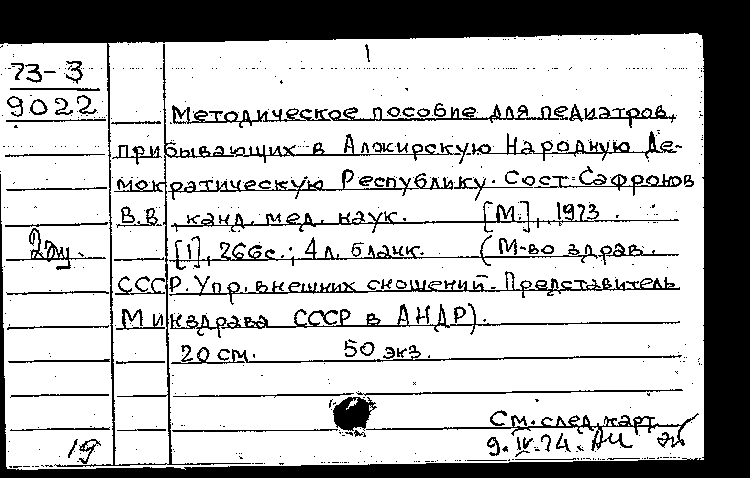 1
73-3
9022
Методическое пособие для педиатров,
прибывающих в Алжирскую Народную Де-
мократическую Республику. Сост. Сафронов
В.В., канд. мед. наук. [М.], 1973.
2эк.
[1], 266с.; 4 л. бланк. (М-во здрав.
СССР. Упр. внешних сношений. Представитель
Минздрава СССР в АНДР).
20 см. 50 экз.
См. след. карт.
19
9.IV.74.